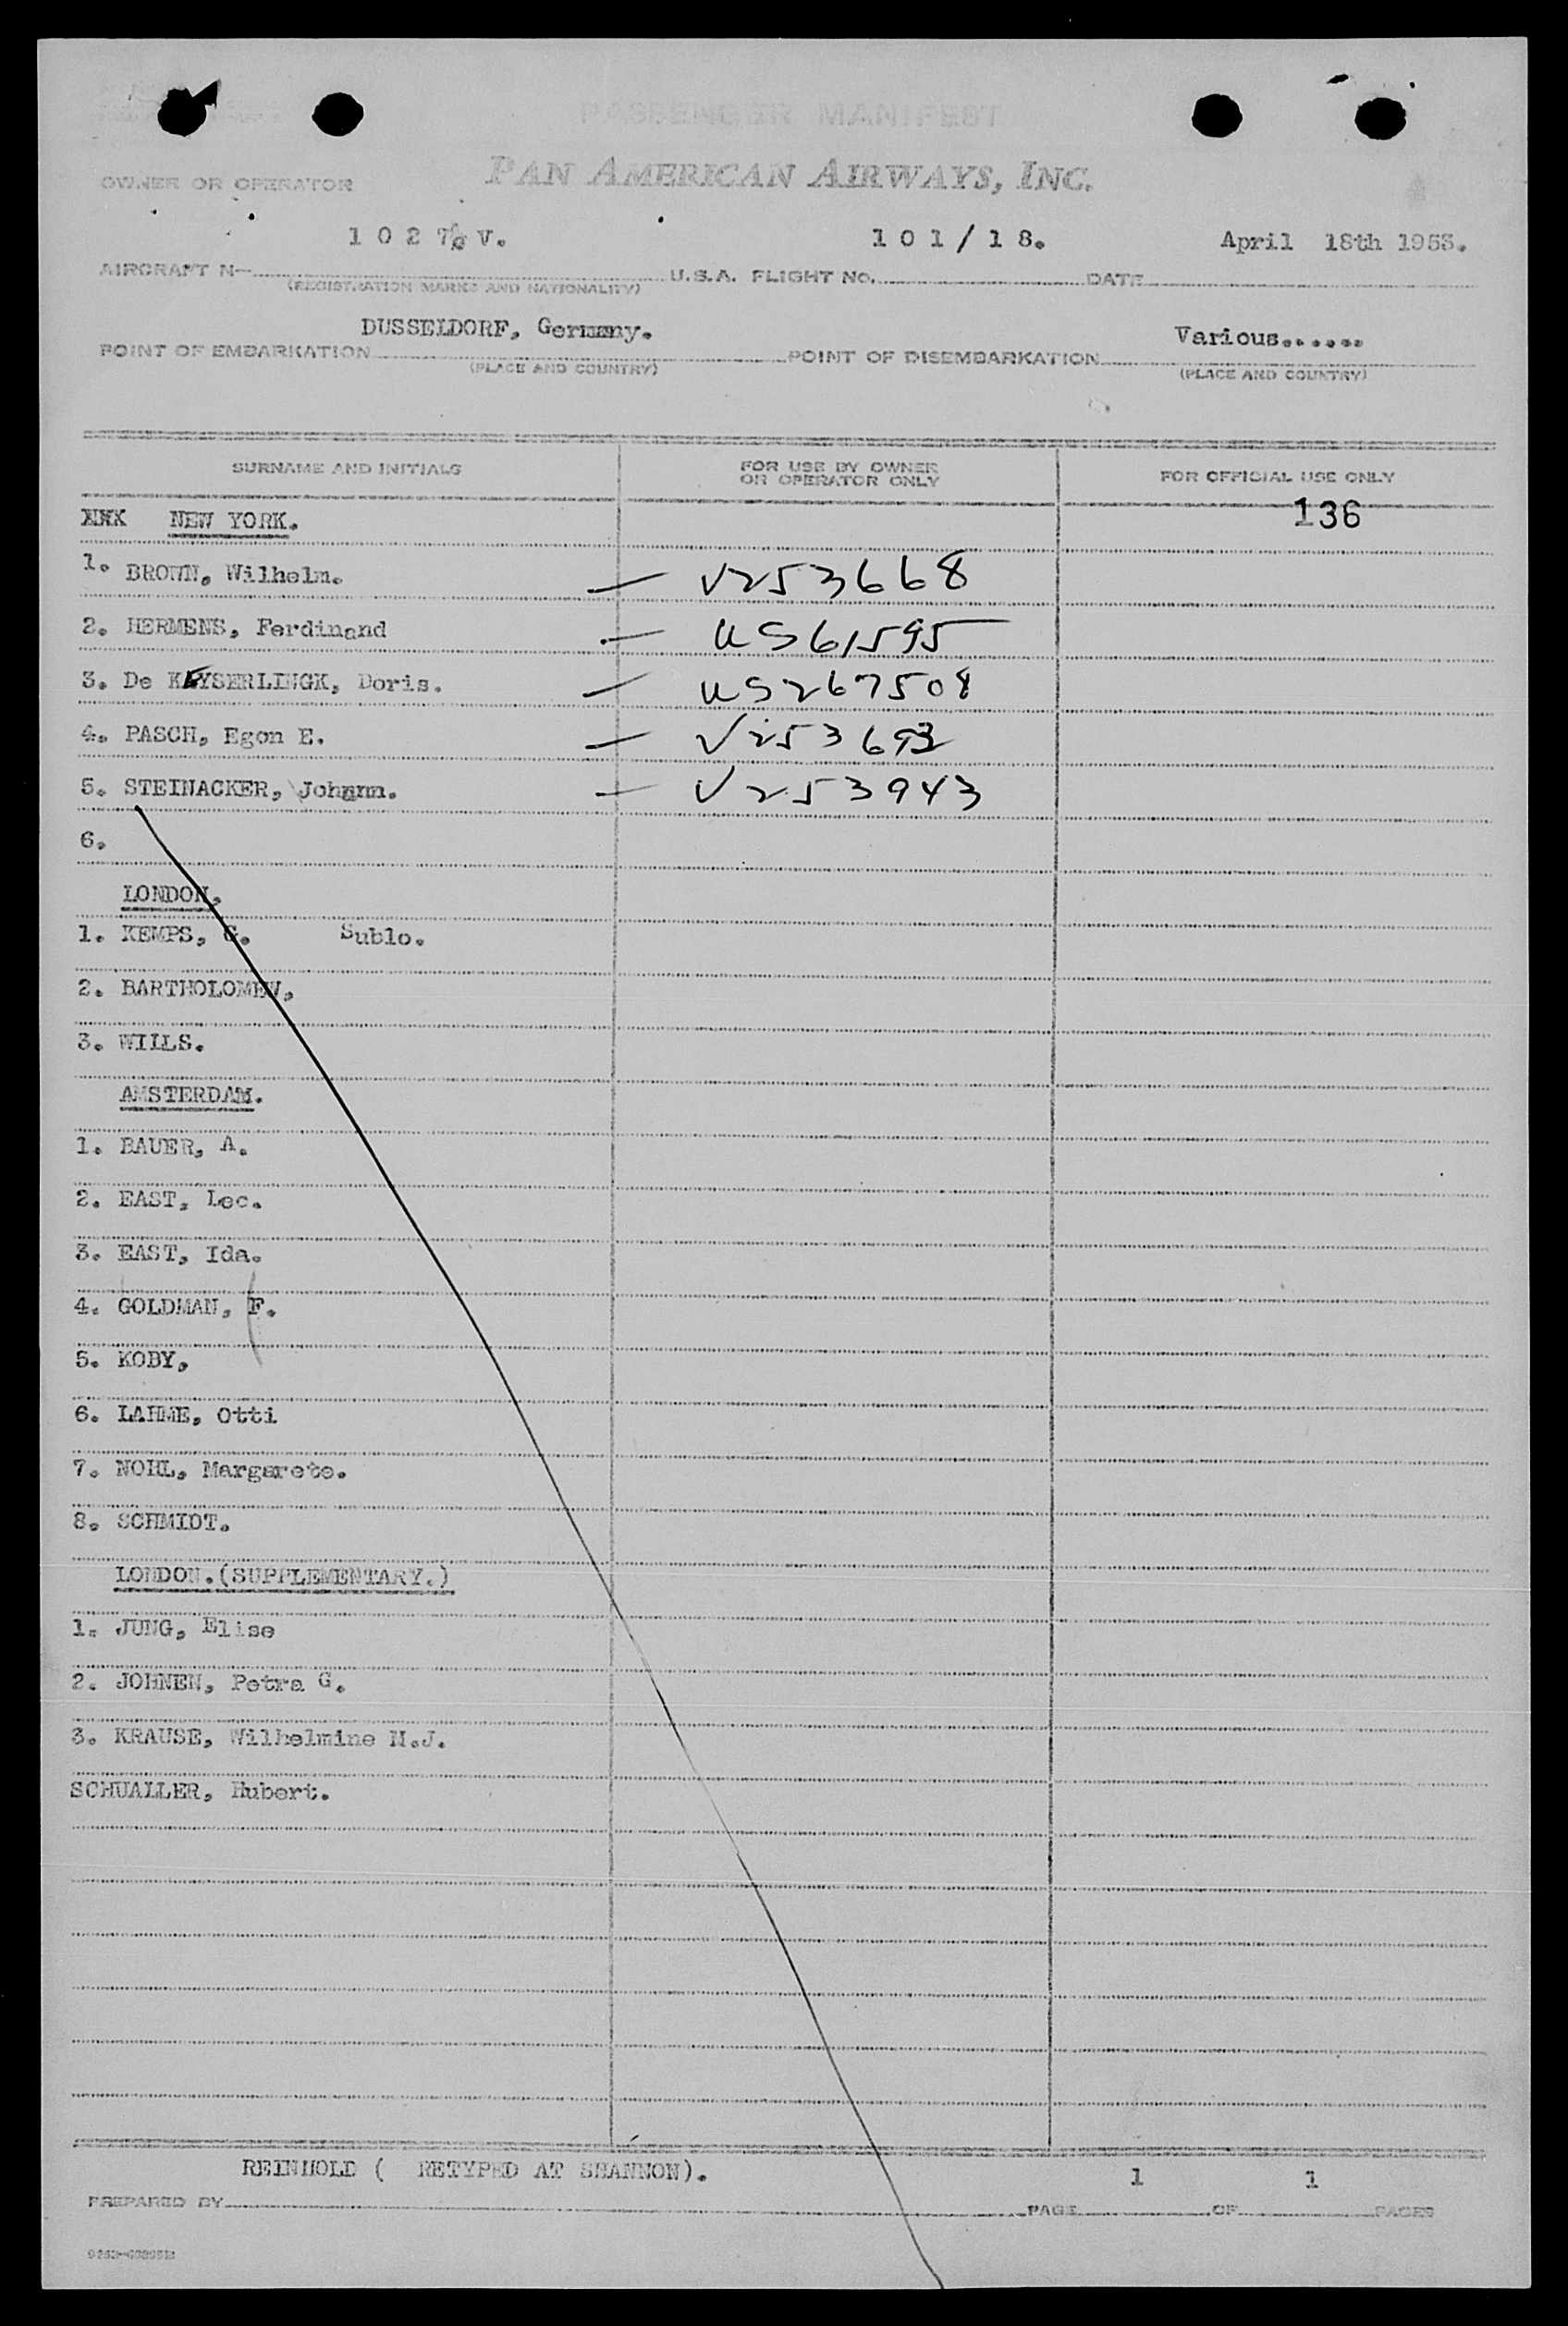 PASSENGER MANIFEST
OWNER OR OPERATOR PAN AMERICAN AIRWAYS, INC.
1 0 2 V. 1 0 1 / 1 8. April 18th 1953.
AIRCRAFT N— U.S.A. FLIGHT NO. DATE
(REGISTRATION MARKS AND NATIONALITY)
DUSSELDORF, Germany. Various......
POINT OF EMBARKATION POINT OF DISEMBARKATION
(PLACE AND COUNTRY) (PLACE AND COUNTRY)
SURNAME AND INITIALS FOR USE BY OWNER OR OPERATOR ONLY FOR OFFICIAL USE ONLY
NEW YORK. 136
1. BROWN, Wilhelm. — V253668
2. HERMENS, Ferdinand — US61595
3. De KEYSERLINGK, Doris. — US267508
4. PASCH, Egon E. — V253693
5. STEINACKER, Johann. — V253943
6.
LONDON.
1. KEMPS, G. Sublo.
2. BARTHOLOMEW,
3. WILLS.
AMSTERDAM.
1. BAUER, A.
2. EAST, Leo.
3. EAST, Ida.
4. GOLDMAN, F.
5. KOBY,
6. LAHME, Otti
7. NOHL, Margarete.
8. SCHMIDT.
LONDON.(SUPPLEMENTARY.)
1. JUNG, Elise
2. JOHNEN, Petra G.
3. KRAUSE, Wilhelmine M.J.
SCHUALLER, Hubert.
REINHOLD ( RETYPED AT SHANNON). 1 1
PREPARED BY PAGE OF PAGES